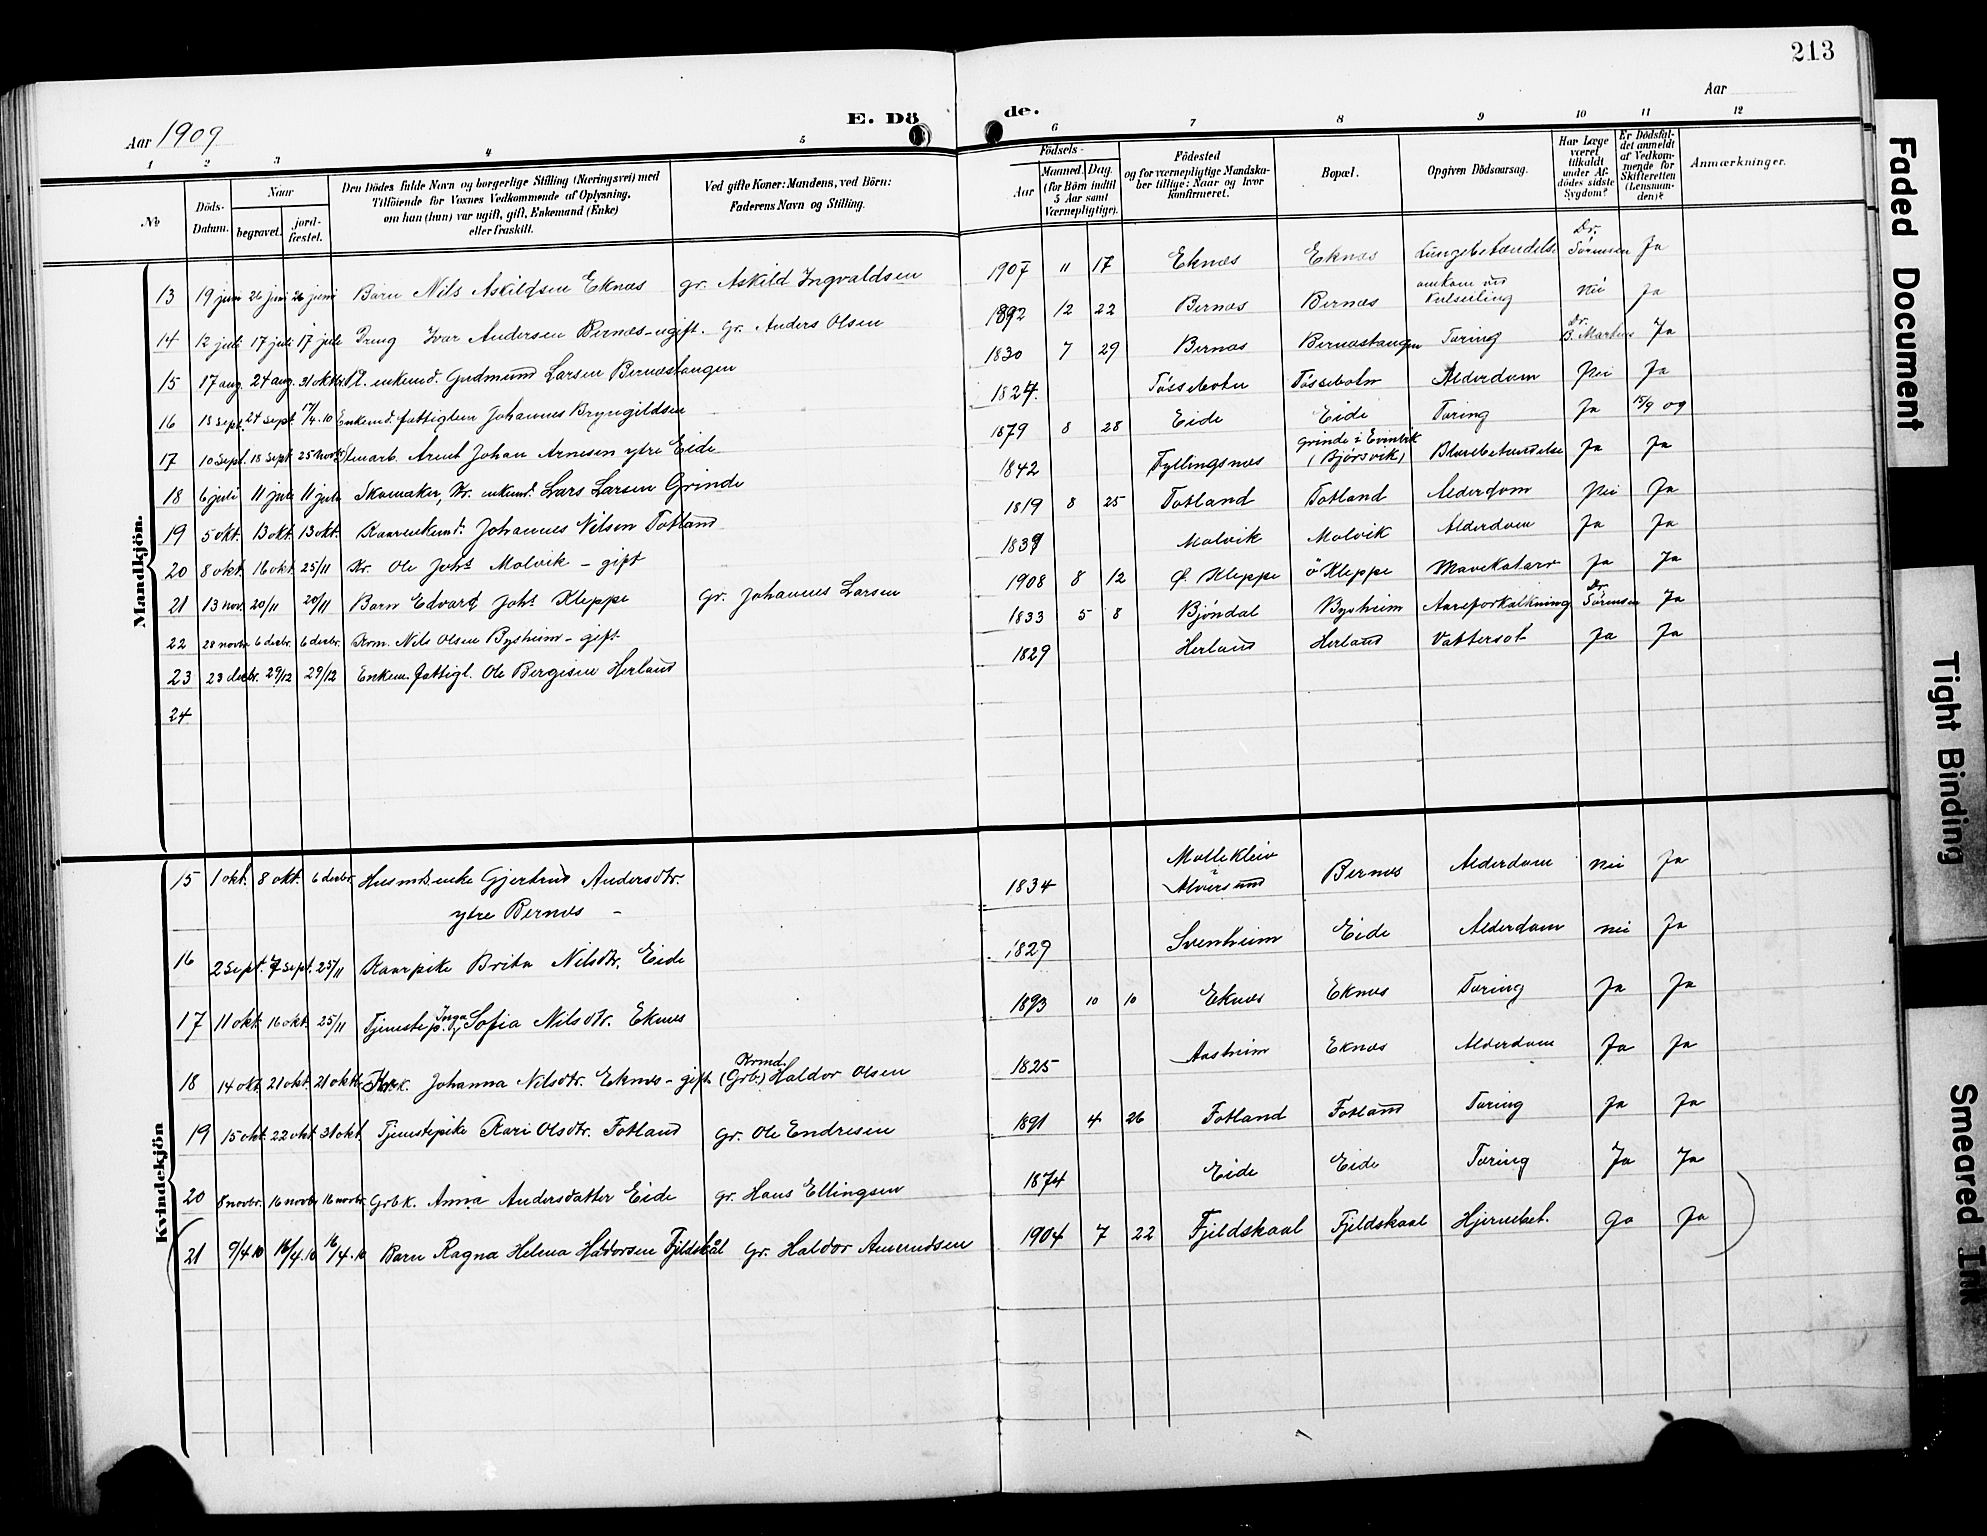 213
Aar 1909
E. Dö de.
Aar
1 2 3 4 5 6 7 8 9 10 11 12
No
Döds-Datum.
Naar
begravet.
jord-fæstet.
Den Dödes fulde Navn og borgerlige Stilling (Næringsvei) med
Tilföiende for Voxnes Vedkommende af Oplysning,
om han (hun) var ugift, gift, Enkemand (Enke)
eller fraskilt.
Ved gifte Koner: Mandens, ved Börn:
Faderens Navn og Stilling.
Födsels-
Aar
Maaned. Dag.
(for Börn indtil
5 Aar samt
Værnepligtige).
Födested
og for værnepligtige Mandska-
ber tillige: Naar og hvor
konfirmeret.
Bopæl.
Opgiven Dödsaarsag.
Har Læge
været
tilkaldt
under Af-
dödes sidste
Sygdom?
Er Dödsfal-
det anmeldt
af Vedkom-
mende for
Skifteretten
(Lensman-
den)?
Anmærkninger.
Mandkjön.
13 19 juni 26 juni 26 juni Barn Nils Askildsen Eknæs gr. Askild Ingvaldsen 1907 11 17 Eknæs Eknæs Lungebetændelse Dr. Sörensen Ja
14 12 juli 17 juli 17 juli Dreng Ivar Andersen Bernæs - ugift. Gr. Anders Olsen 1892 12 22 Bernæs Bernæs omkom ved Kulseiling nei Ja
15 17 aug. 24 aug. 31 oktbr. enkemd. Gudmund Larsen Bernæstangen 1830 7 29 Bernæs Bernæstangen Tæring Dr. B. Martens Ja
16 18 sept. 24 sept. 7/4.10 Enkemd. fattiglem Johannes Bryngildsen 1827. Tösseboln Tösseboln Alderdom Nei Ja
17 10 Sept. 18 sept 25 novbr. Arnt Johan Arnesen ytre Eide 1879 8 28 Eide Eide Tæring Ja 15/9 09
18 6 juli 11 juli 11 juli Skomaker, Kr. enkemd. Lars Larsen Grinde 1842 Fyllingsnæs grinde i Evinvik (Bjørsvik) Blærebetændelse Ja Ja
19 5 okt. 13 okt. 13 okt. Kaarenkemd. Johannes Nilsen Totland 1819 8 25 Totland Totland Alderdom Nei Ja
20 8 okt. 16 okt. 25/11 Kr. Ole Johs Molvik - gift 1839 Molvik Molvik Alderdom Ja Ja
21 13 nov. 20/11 20/11 Barn Edvard Johs Kleppe gr. Johannes Larsen 1908 8 12 Ø. Kleppe ö Kleppe Mavekatarr Ja Ja
22 28 novbr 6 desbr. 6 desbr. Krm. Nils Olsen Bysheim - gift 1833 5 8 Bjöndal Bysheim Aareforkalkning Dr. Sörensen Ja
23 23 desbr. 29/12 29/12 Enkem. fattigl. Ole Bergesen Herland 1829 Herland Herland Vattersot Ja Ja
24
Kvindekjön
15 1 okt. 8 okt. 6 desbr. Husmds. enke Gjertrud Andersdtr. 1834 Mollekleiv i Alversund Bernæs Alderdom nei Ja
ytre Bernæs -
16 2 sept. 7 sept. 25/11 Kaarpike Brita Nilsdtr. Eide 1829 Svenheim Eide Alderdom nei Ja
17 11 okt. 16 okt. 25/11 Tjenestep. Inga Sofia Nilsdtr. Eknes 1893 10 10 Eknes Eknes Tæring Ja Ja
18 14 okt. 21 okt. 21 oktbr. Johanna Nilsdtr. Eknæs - gift Krmd. (Grb.) Haldor Olsen 1825 Aasheim Eknæs Alderdom Ja Ja
19 15 okt. 22 okt. 31 okt. Tjenestepike Kari Olsdtr. Fotland Gr. Ole Endresen 1891 4 26 Fotland Fotland Tæring Ja Ja
20 8 novbr. 16 novbr 16 novbr. Grbk. Anna Andersdatter Eide gr. Hans Ellingsen 1874 Eide Eide Tæring Ja Ja
21 9/4.10 16/4.10 16/4.10 Barn Ragna Helena Haldorsen Fjeldskål Gr. Haldor Amundsen 1904 7 22 Fjeldskaal Fjeldskaal Hjernebet. Ja Ja
Faded Document
Tight Binding
Smeared Ink